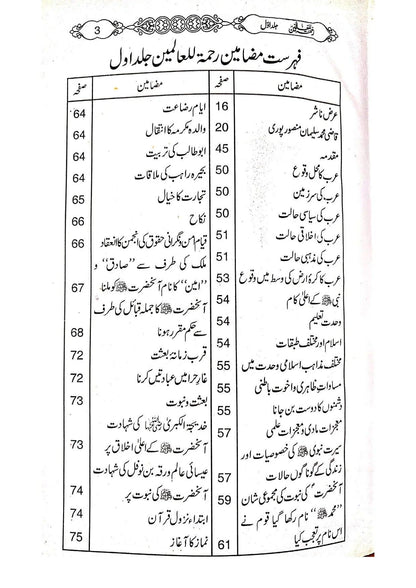 3
جلد اوّل
فہرست مضامین رحمۃ للعالمین جلد اول
مضامین صفحہ
عرض ناشر 16
قاضی محمد سلیمان منصور پوری 20
مقدمہ 45
عرب کا محل وقوع 50
عرب کی سرزمین 50
عرب کی سیاسی حالت 50
عرب کی اخلاقی حالت 51
عرب کی مذہبی حالت 51
عرب کا کرۂ ارض کی وسط میں وقوع 53
نبی ﷺ کے اعلیٰ کام 54
وحدت تعلیم 54
اسلام اور مختلف طبقات 54
مختلف مذاہب اسلامی وحدت میں 55
مساوات ظاہری و اخوت باطنی 55
دشمنوں کا دوست بن جانا 55
معجزات مادی و معجزات علمی 57
سیرت نبوی ﷺ کی خصوصیات اور
زندگی کے گوناگوں حالات 57
آنحضرت ﷺ کی نبوت کی مجموعی شان 59
”محمد ﷺ“ نام رکھا گیا قوم نے
اس نام پر تعجب کیا 61
مضامین صفحہ
ایام رضاعت 64
والدہ مکرمہ کا انتقال 64
ابو طالب کی تربیت 64
بحیرہ راہب کی ملاقات 64
تجارت کا خیال 65
نکاح 66
قیام امن و نگرانی حقوق کی انجمن کا انعقاد 66
ملک کی طرف سے ”صادق“ و
”امین“ کا نام آنحضرت ﷺ کو ملنا 67
آنحضرت ﷺ کا جملہ قبائل کی طرف
سے حکم مقرر ہونا 68
قرب زمانہ بعثت 72
غار حرا میں عبادتیں کرنا 72
بعثت و نبوت 73
خدیجۃ الکبریٰ کی شہادت
آنحضرت ﷺ کے اعلیٰ اخلاق پر 73
عیسائی عالم ورقہ بن نوفل کی شہادت
آنحضرت ﷺ کی نبوت پر 74
ابتداء نزول قرآن 74
نماز کا آغاز 75